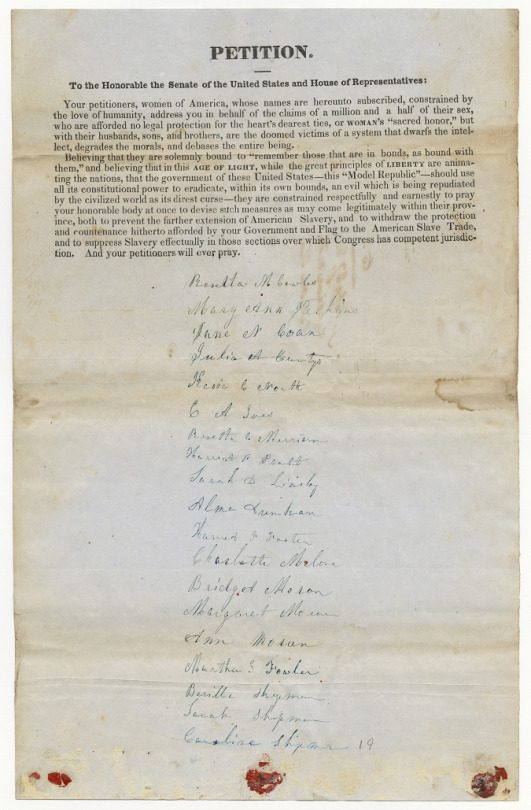 PETITION.
To the Honorable the Senate of the United States and House of Representatives:
Your petitioners, women of America, whose names are hereunto subscribed, constrained by
the love of humanity, address you in behalf of the claims of a million and a half of their sex,
who are afforded no legal protection for the heart's dearest ties, OR WOMAN'S "sacred honor," but
with their husbands, sons, and brothers, are the doomed victims of a system that dwarfs the intel-
lect, degrades the morals, and debases the entire being.
Believing that they are solemnly bound to "remember those that are in bonds, as bound with
them," and believing that in this AGE OF LIGHT, while the great principles of LIBERTY are anima-
ting the nations, that the government of these United States—this "Model Republic"—should use
all its constitutional power to eradicate, within its own bounds, an evil which is being repudiated
by the civilized world as its direst curse—they are constrained respectfully and earnestly to pray
your honorable body at once to devise such measures as may come legitimately within their prov-
ince, both to prevent the further extension of American Slavery, and to withdraw the protection
and countenance hitherto afforded by your Government and Flag to the American Slave Trade,
and to suppress Slavery effectually in those sections over which Congress has competent jurisdic-
tion. And your petitioners will ever pray.
Rosetta M Cowles
Mary Ann Perkins
Jane N Cowan
Julia A
E North
E A Ives
E Merriam
Harriet F Pratt
Sarah D Linsly
Alma
Harriet F Foster
Charlotte
Bridget Moran
Margaret Moran
Ann Moran
Martha G Fowler
Shipman
Sarah Shipman
Caroline Shipman 19